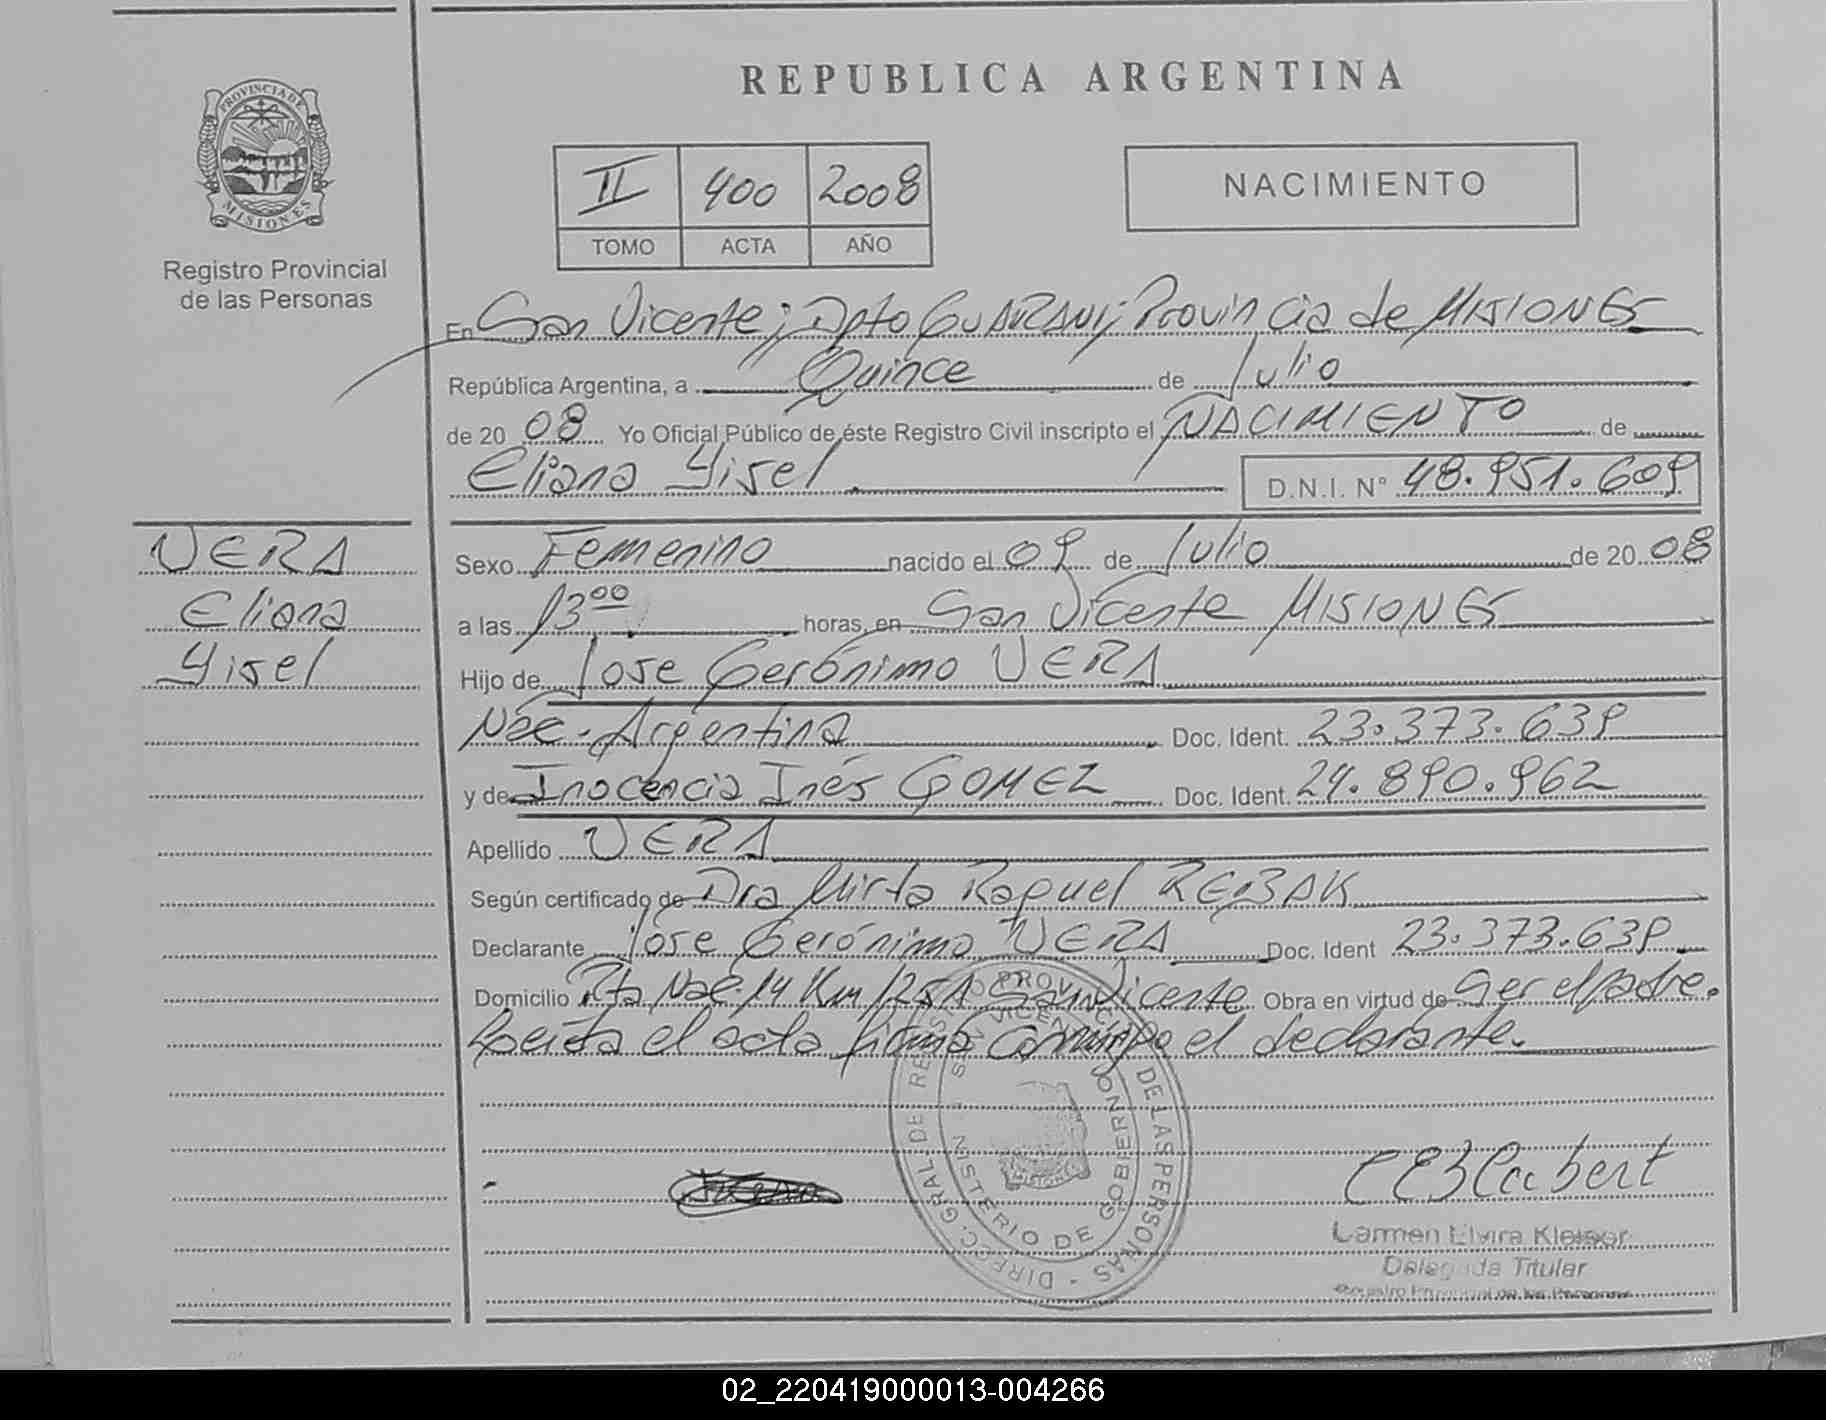 REPUBLICA ARGENTINA
PROVINCIA DE
MISIONES
Registro Provincial
de las Personas
II 400 2008
TOMO ACTA AÑO
NACIMIENTO
En San Vicente; Dpto GUARANI; Provincia de MISIONES
República Argentina, a Quince de Julio
de 20 08 Yo Oficial Público de éste Registro Civil inscripto el NACIMIENTO de
Eliana Yisel D.N.I. N° 48.951.609
VERA
Eliana
Yisel
Sexo Femenino nacido el 09 de Julio de 20 08
a las 13 00 horas, en San Vicente MISIONES
Hijo de Jose Gerónimo VERA
Nac. Argentina Doc. Ident. 23.373.639
y de Inocencia Inés GOMEZ Doc. Ident. 24.890.962
Apellido VERA
Según certificado de Dra Mirta Raquel REBAK
Declarante Jose Gerónimo VERA Doc. Ident 23.373.639
Domicilio Rta Nac 14 Km 1251 San Vicente Obra en virtud de Ser el padre.
Leida el acta firma conmigo el declarante.
DIRECC. GRAL. DE DE LAS PERSONAS
MINISTERIO DE GOBIERNO
Carmen Elvira
Delegada Titular
Registro Provincial de las Personas
02_220419000013-004266